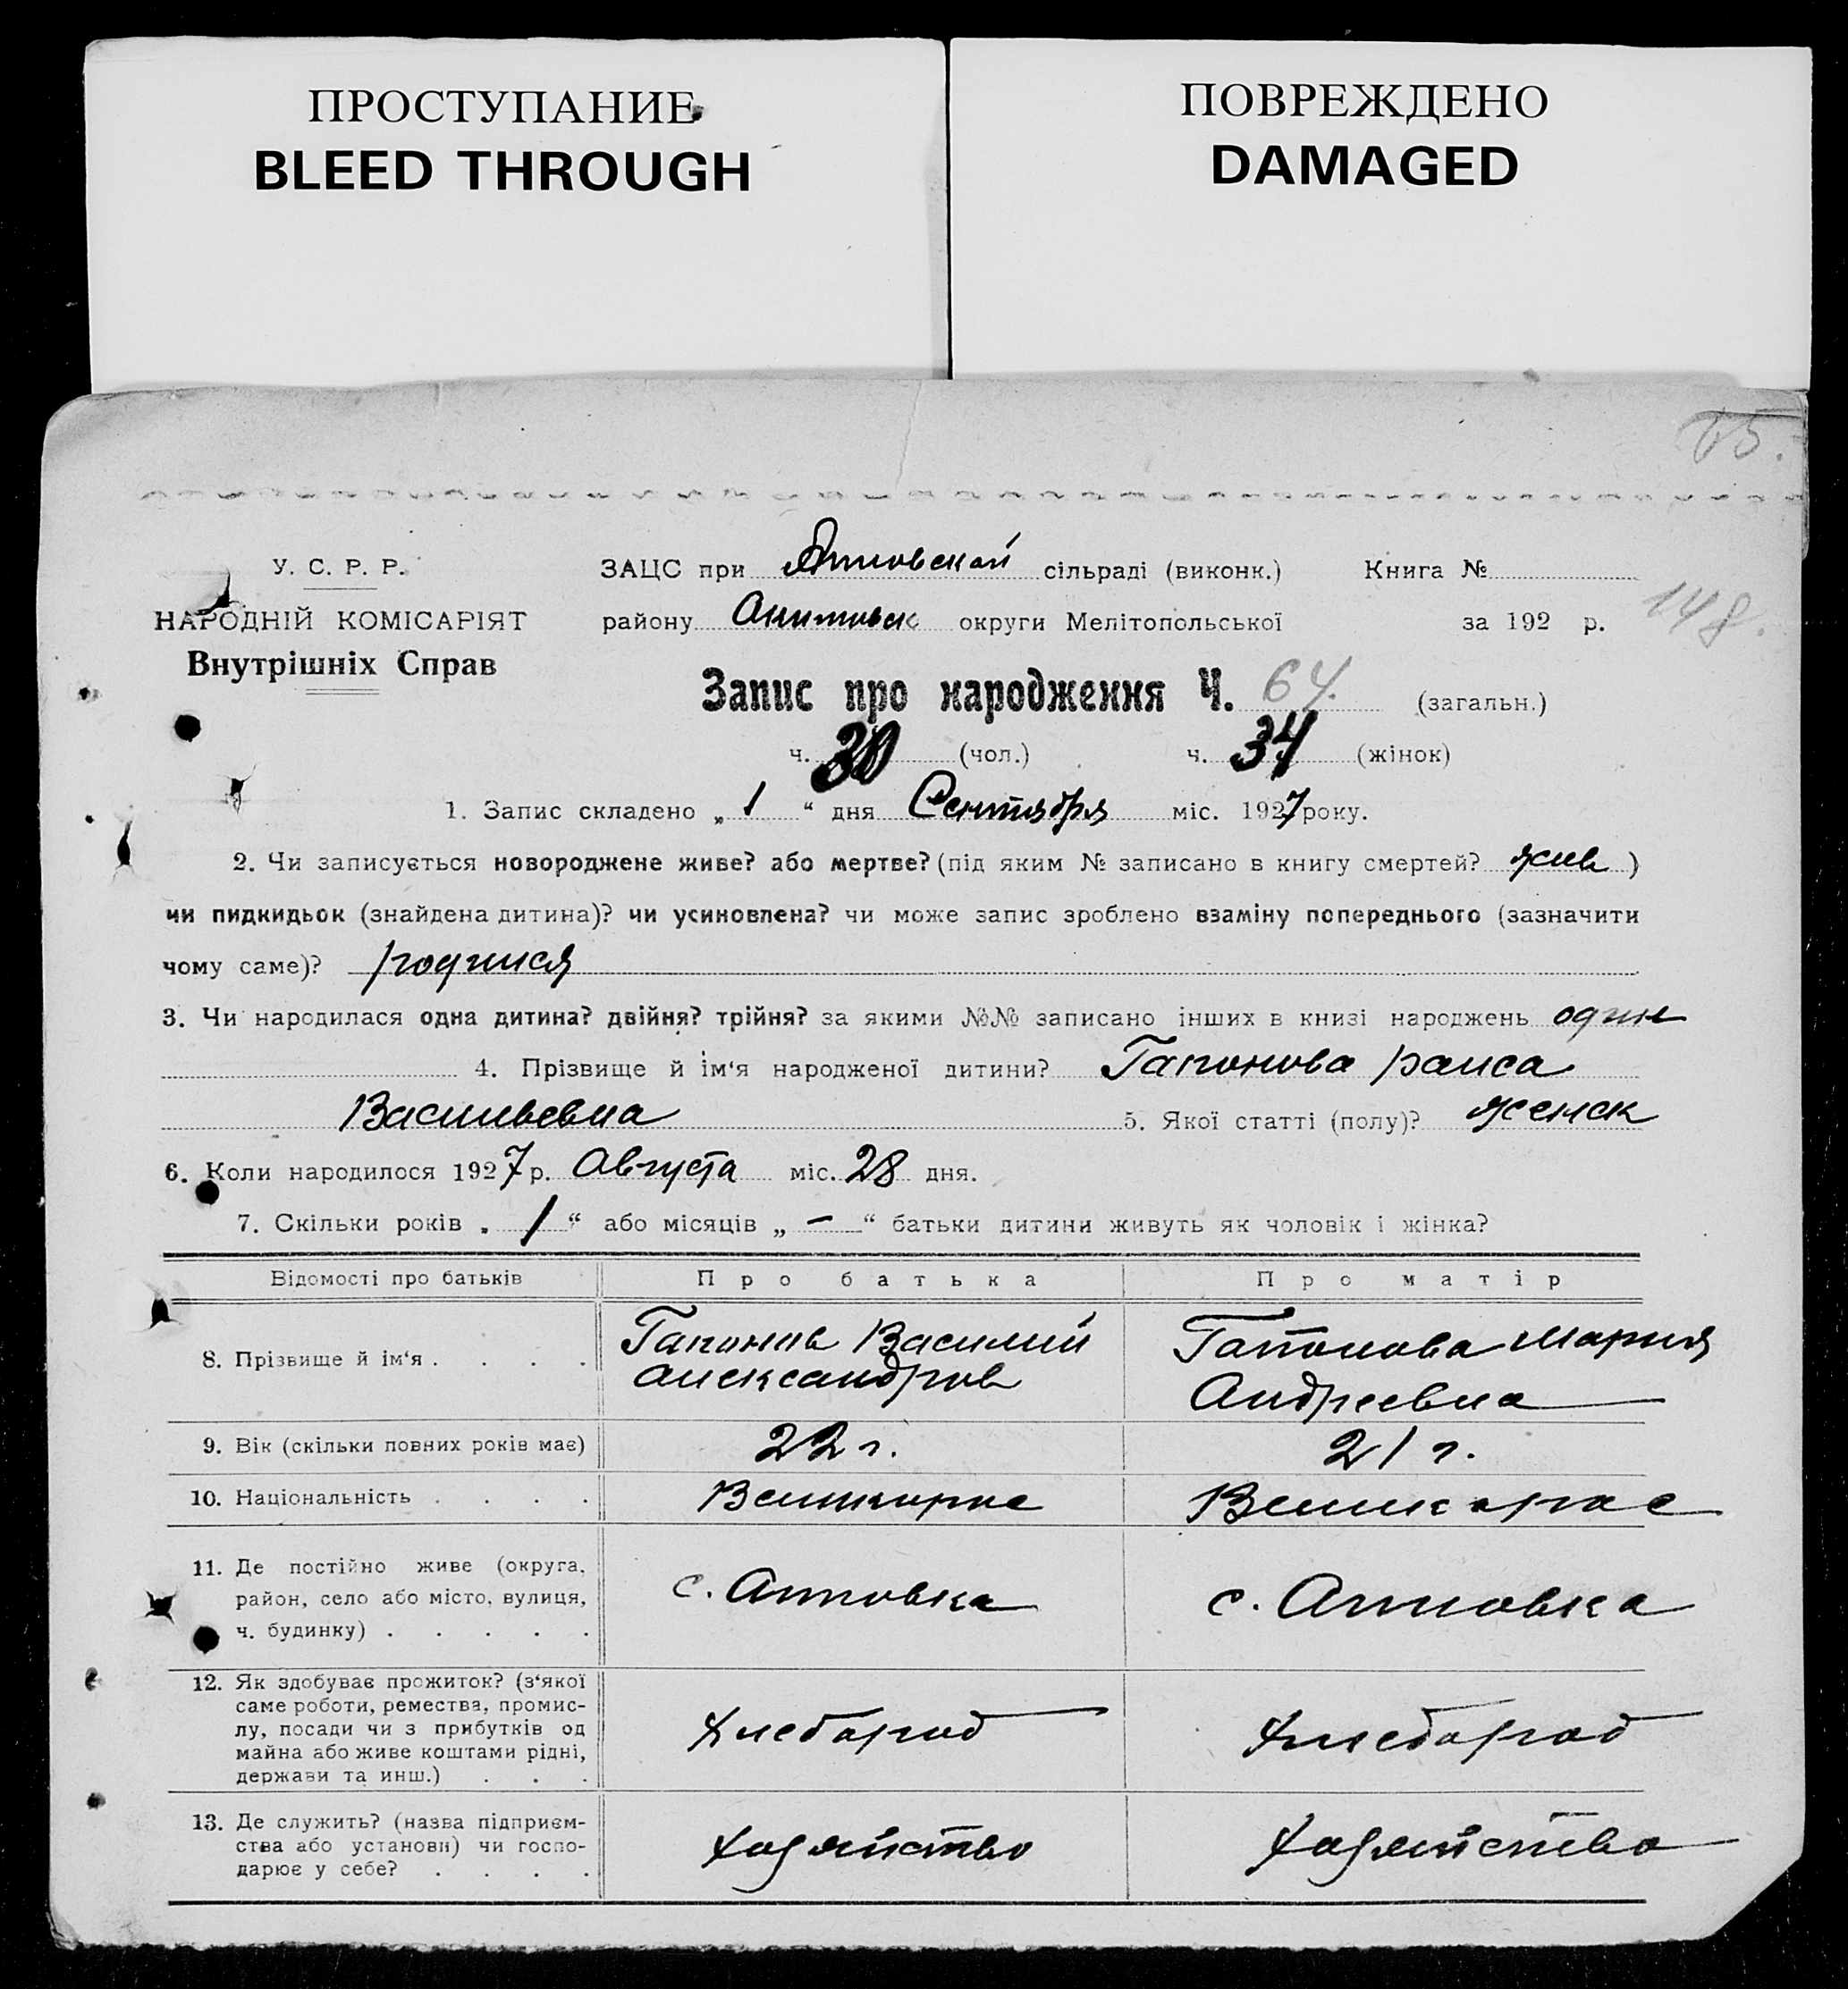 ПРОСТУПАНИЕ
BLEED THROUGH
ПОВРЕЖДЕНО
DAMAGED
65.
У. С. Р. Р.
НАРОДНІЙ КОМІСАРІЯТ
Внутрішніх Справ
ЗАЦС при сільраді (виконк.) Книга №
району Акимовск округи Мелітопольської за 192 р.
148.
Запис про народження Ч. 64. (загальн.)
ч. 30 (чол.) ч. 34 (жінок)
1. Запис складено „ 1 “ дня Сентября міс. 1927 року.
2. Чи записується новороджене живе? або мертве? (під яким № записано в книгу смертей? жив )
чи пидкидьок (знайдена дитина)? чи усиновлена? чи може запис зроблено взаміну попереднього (зазначити
чому саме)? родился
3. Чи народилася одна дитина? двійня? трійня? за якими №№ записано інших в книзі народжень один
4. Прізвище й ім‘я народженої дитини? Гапонова раиса
Васильевна 5. Якої статті (полу)? женск
6. Коли народилося 1927 р. Августа міс. 28 дня.
7. Скільки років „ 1 “ або місяців „ — “ батьки дитини живуть як чоловік і жінка?
Відомості про батьків Про батька Про матір
8. Прізвище й ім‘я . . . . Гапонов Василий
Александров
Гапонова Мария
Андреевна
9. Вік (скільки повних років має) 22 г. 21 г.
10. Національність . . . . Великорос Великорос
11. Де постійно живе (округа,
район, село або місто, вулиця,
ч. будинку) . . . . .
с. с.
12. Як здобуває прожиток? (з‘якої
саме роботи, ремества, промис-
лу, посади чи з прибутків од
майна або живе коштами рідні,
держави та инш.) . . .
Хлебороб Хлебороб
13. Де служить? (назва підприєм-
ства або установи) чи госпо-
дарює у себе? . . . .
Хозяйство Хозяйство